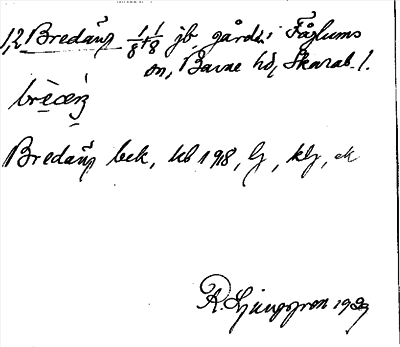 1,2 Bredäng 1/8+1/8 jb, gård i Fåglums
sn, Barne hd, Skarab. l.
Bredäng bek, kb 1918, lj, klj, ek
R. Ljunggren 1929